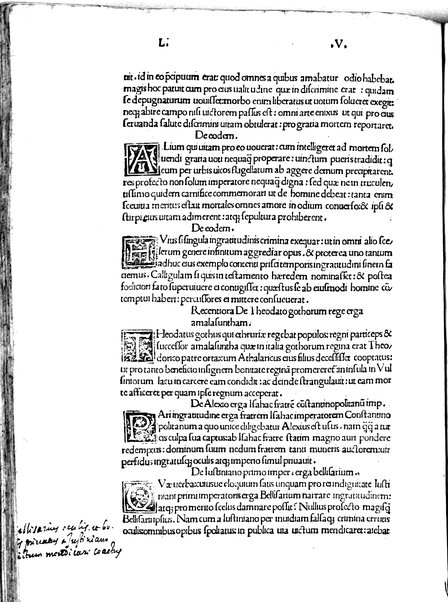 L. .V.
rit. id in eo pcipuum erat: quod omnes a quibus amabatur odio habebat.
magis hoc patuit cum pro eius ualitudine quæ in discrimine erat: quidam
se depugnaturum uouisset: morbo enim liberatus ut uotum solueret exegit:
neq; abire campo nisi uictorem passus est: omni arte enixus ut qui pro eius
seruanda salute discrimini uitam obtulerat: pro gratia mortem reportaret.
De eodem.
Alium qui uitam pro eo uouerat: cum intelligeret ad mortem sol
uendi gratia uoti nequaq̃ properare: uinctum pueris tradidit: q
eum per urbis uicos flagellatum ab aggere demum præcipitarent.
res profecto non solum imperatore nequaq̃ digna: sed quæ in truculen
tissimo quidem carnifice commemorari ut de homine debeat: tanta enim
secuti a meritus est ut mortales omnes amore in odium conuerso: & ipsi &
stirpi eius uitam adimerent: atq; sepultura prohiberent.
De eodem.
Vius si singula ingratitudinis crimina exequar: ut in omni alio sce
lerum genere infinitum aggrediar opus. & præterea uno tantum
adhuc eius exemplo contenti prisci temporis ingratitudini finem fa
ciemus. Calligulam si quis in testamento hæredem nominasset: & postea
foeliciori fato superuiuere ei contigisset: quæstus se ab eiusmodi homine cō
temptui haberi: percussores ei mittere consueuerat.
Recentiora De Theodato gothorum rege erga
amalasuntham.
Theodatus gothus qui ethruriæ regebat populos: regni particeps &
successor amalasuntha quæ in italia gothorum regina erat Theo
dorico patre orta cum Athalaricus eius filius decessisset cooptatus:
ut pro tanto beneficio insignem bonitate regina promereret in insula in Vul
sini torum lacu in carcere eam condidit: ac deinde strangulauit: ut eam mor
te afficeret per quam ipse regnum acceperat.
De Alexio erga Isahac fratrē cōstantinopolitanū imp.
Pari ingratitudine erga fratrem Isahac imperatorem Constantino
politanum a quo unice diligebatur Alexius est usus. nam q̃q̃ a tur
cis culpa sua captus ab Isahac fratre statim magno auri pondere
redemptus: dominum suum nedum fratrem tanti muneris auctorem aut
perfidus: ingratusq; oculis atq; imperio simul priuauit.
De iustiniano primo imper. erga bellisarium.
Quæ uerba cuiusue eloquium satis unquam pro rei indignitate Iusti
niani primi imperatoris erga Bellisarium narrare ingratitudinem:
atq; pro merito scelus damnare posset? Nullius profecto magisq;
Bellisarii ipsius. Nam cum a Iustiniano per inuidiam falsaq; crimina erutis
oculis omnibus opibus spoliatus: in publica uia uictum mendicaret: aiebat